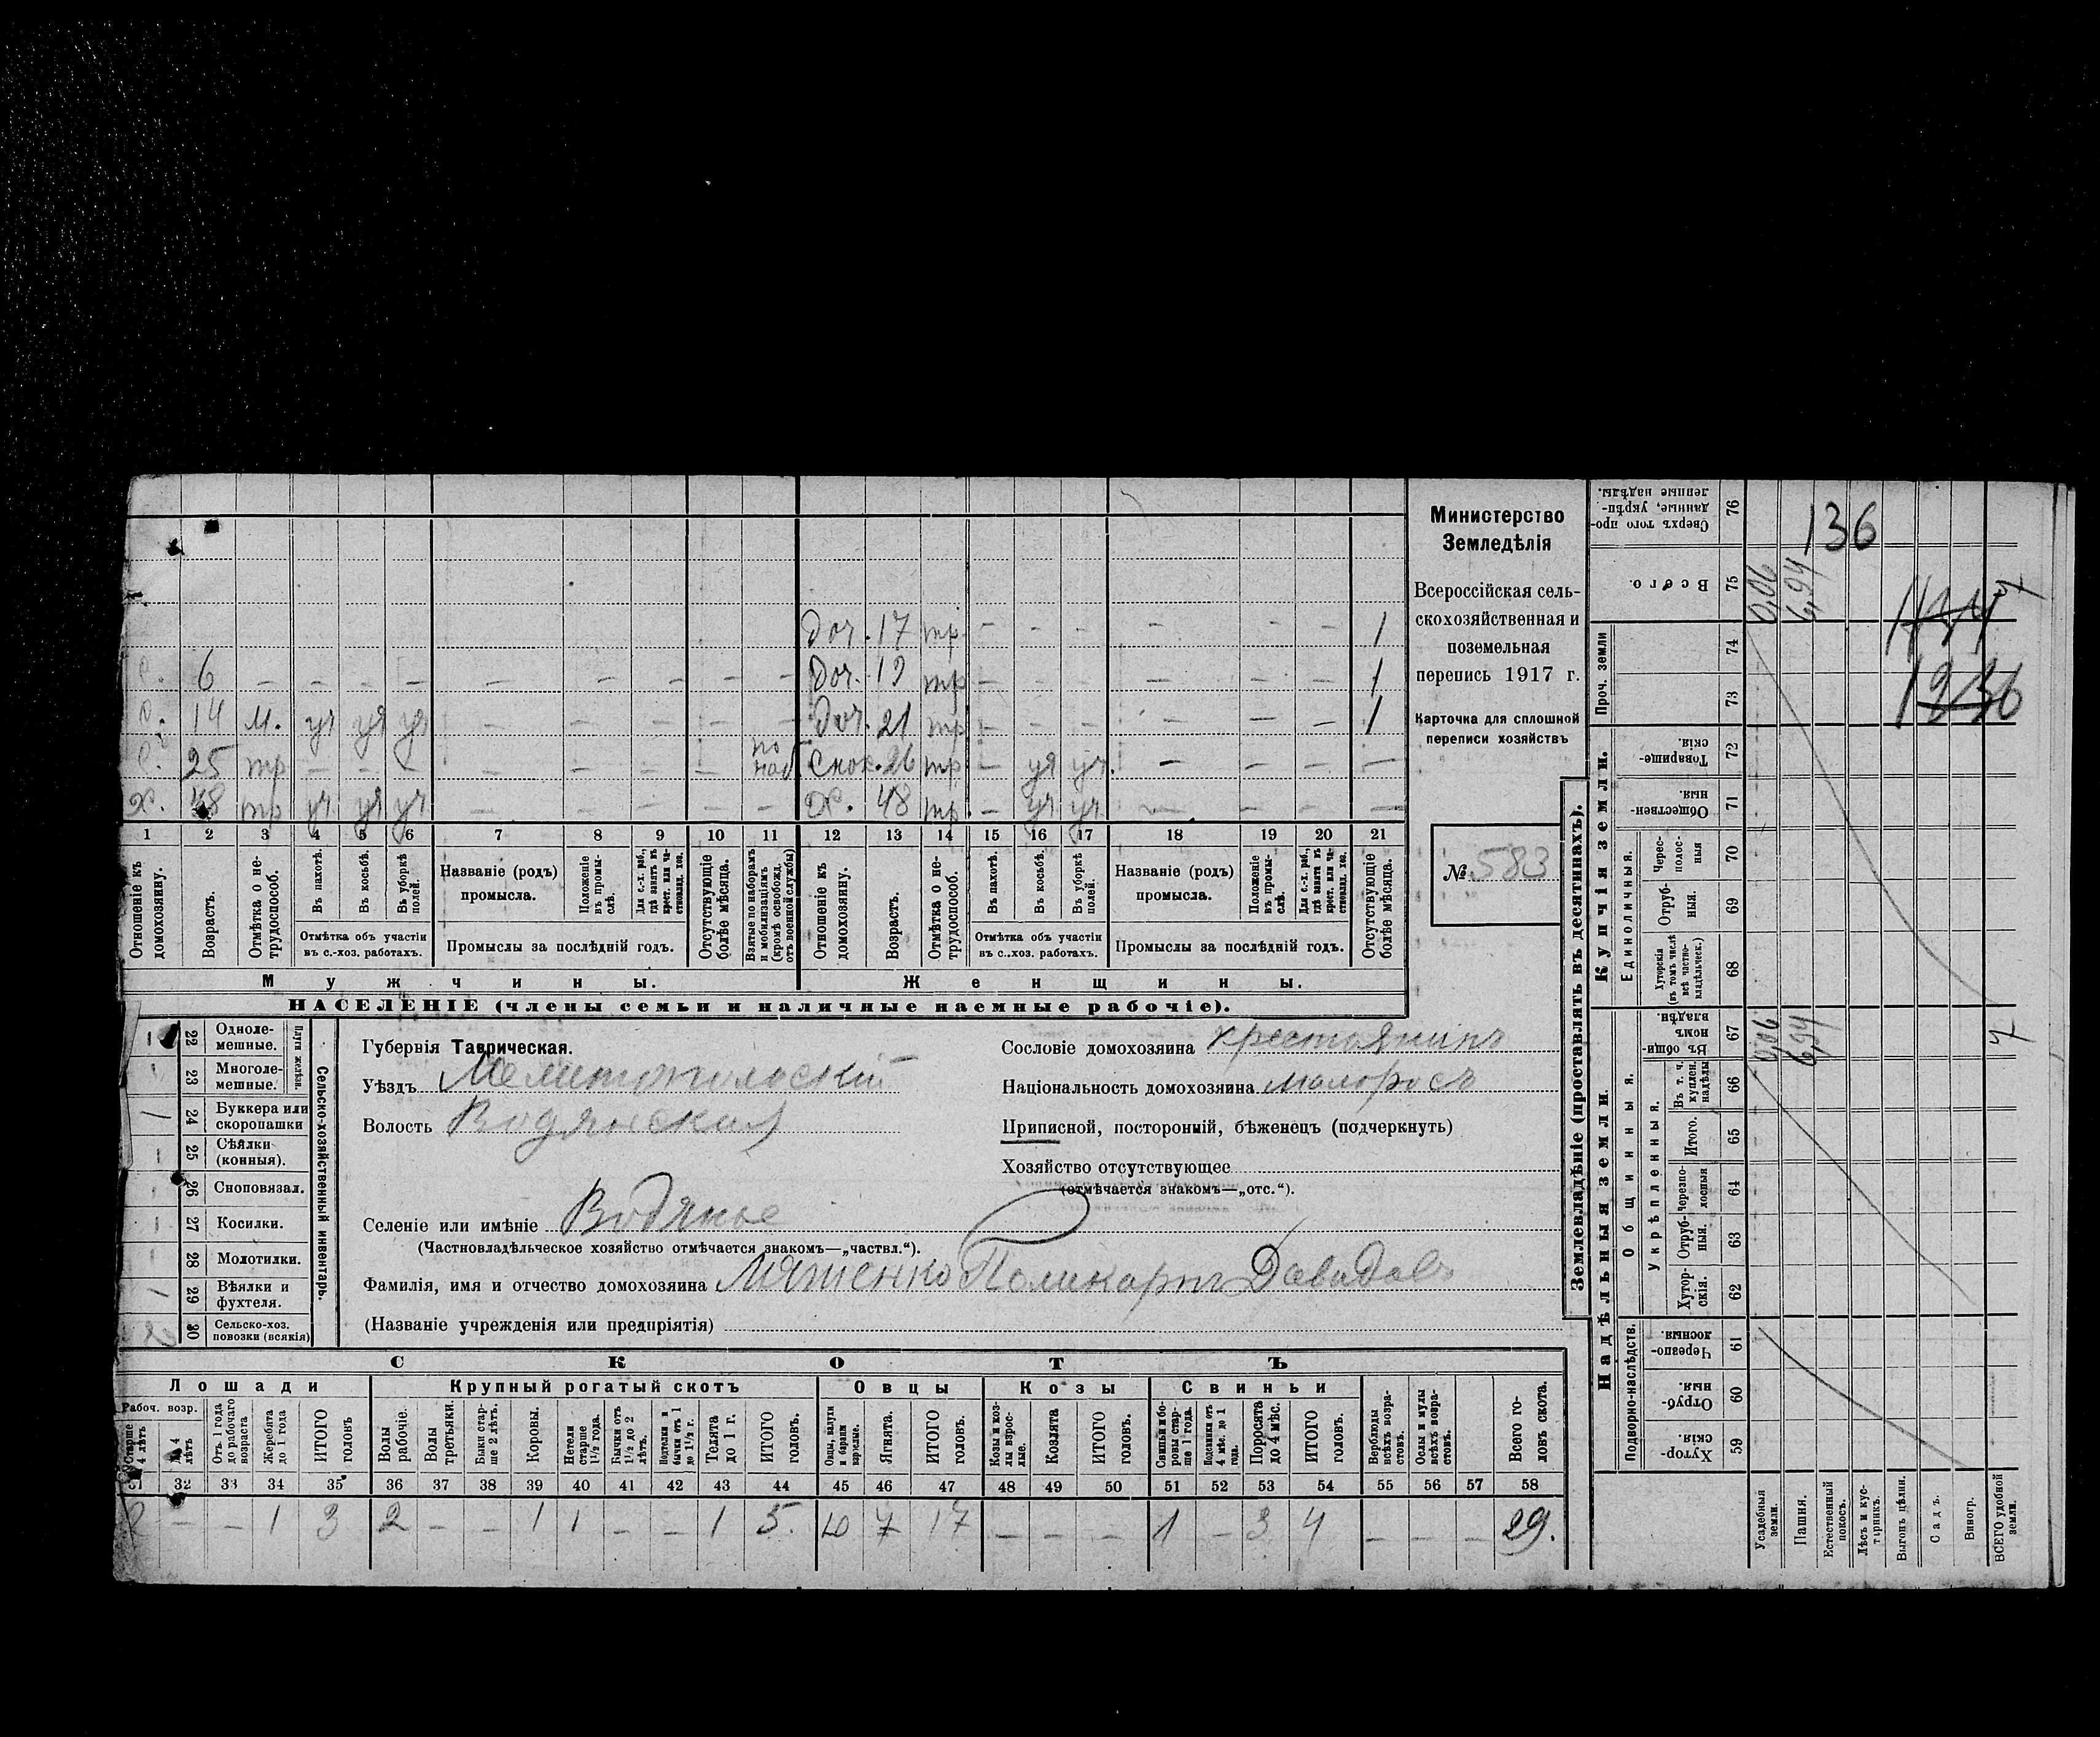 доч. 17 тр. – – – – – – 1
с. 6 – – – – – – – – – доч. 19 тр – – – – – – 1
с. 14 м. уч уч уч – – – – – доч. 21 тр – – – – – – 1
с. 25 тр – – – – – – – по наб. снох. 26 тр – уч уч. – – – –
х. 48 тр уч уч уч – – – – – х. 48 тр. – уч уч. – – – –
1 2 3 4 5 6 7 8 9 10 11 12 13 14 15 16 17 18 19 20 21
Отношеніе къ домохозяину.
Возрастъ.
Отмѣтка о не-трудоспособ.
Въ пахотѣ.
Въ косьбѣ.
Въ уборкѣ полей.
Названіе (родъ) промысла.
Положеніе въ промыслѣ.
Для с.-х. раб., гдѣ занятъ въ крест. или частновлад. хоз.
Отсутствующіе болѣе мѣсяца.
Взятые по наборамъ и мобилизаціямъ (кромѣ освобожд. отъ военной службы)
Отношеніе къ домохозяину.
Возрастъ.
Отмѣтка о не-трудоспособ.
Въ пахотѣ.
Въ косьбѣ.
Въ уборкѣ полей.
Названіе (родъ) промысла.
Положеніе въ промыслѣ.
Для с.-х. раб., гдѣ занятъ въ крест. или частновлад. хоз.
Отсутствующіе болѣе мѣсяца.
Отмѣтка объ участіи въ с.-хоз. работахъ.
Промыслы за послѣдній годъ.
Отмѣтка объ участіи въ с.-хоз. работахъ.
Промыслы за послѣдній годъ.
Мужчины.
Женщины.
НАСЕЛЕНІЕ (члены семьи и наличные наемные рабочіе).
Министерство
Земледѣлія
Всероссійская сель-
скохозяйственная и
поземельная
перепись 1917 г.
Карточка для сплошной
переписи хозяйствъ
№ 583
Сельско-хозяйственный инвентарь.
Плуги желѣзн.
1 22 Одноле-мешные.
23 Многоле-мешные.
24 Буккера или скоропашки
25 Сѣялки (конныя).
26 Сноповязал.
27 Косилки.
28 Молотилки.
29 Вѣялки и фухтеля.
30 Сельско-хоз. повозки (всякія)
Губернія Таврическая.
Уѣздъ Мелитопольскій
Волость Водянская
Селеніе или имѣніе Водяное
(Частновладѣльческое хозяйство отмѣчается знакомъ—„частвл.“).
Фамилія, имя и отчество домохозяина Поликарпъ Давидовъ
(Названіе учрежденія или предпріятія)
Сословіе домохозяина крестьянинъ
Національность домохозяина малоросъ
Приписной, посторонній, бѣженецъ (подчеркнуть)
Хозяйство отсутствующее
(отмѣчается знакомъ—„отс.“).
СКОТЪ
Лошади
Крупный рогатый скотъ
Овцы
Козы
Свиньи
Рабоч. возр.
Старше 4 лѣтъ
До 4 лѣтъ
Отъ 1 года до рабочаго возраста
Жеребята до 1 года
ИТОГО головъ
Волы рабочіе.
Волы третьяки.
Быки старше 2 лѣтъ.
Коровы.
Нетели старше 1½ года.
Бычки отъ 1½ до 2 лѣтъ.
Подтелки и бычки отъ 1 до 1½ г.
Телята до 1 г.
ИТОГО головъ.
Овцы, валухи и бараны взрослые.
Ягнята.
ИТОГО головъ.
Козы и козлы взрослые.
Козлята
ИТОГО головъ.
Свиньи боровы старше 1 года.
Подсвинки отъ 4 мѣс. до 1 года.
Поросята до 4 мѣс.
ИТОГО головъ.
Верблюды всѣхъ возрастовъ.
Ослы и мулы всѣхъ возрастовъ.
Всего головъ скота.
31 32 33 34 35 36 37 38 39 40 41 42 43 44 45 46 47 48 49 50 51 52 53 54 55 56 57 58
2 – – 1 3 2 – – 1 1 – – 1 5. 10 7 17 – – – 1 – 3 4 – – – 29.
Землевладѣніе (проставлять въ десятинахъ).
Надѣльныя земли.
Купчія земли.
Проч. земли
Подворно-наслѣдств.
Общинныя.
Укрѣпленныя.
Единоличныя.
Хуторскія. 59
Отрубныя. 60
Черезполосныя. 61
Хуторскія. 62
Отрубныя. 63
Черезполосныя 64
Итого. 65
Въ т. ч. куплен. надѣлы 66
Въ общинномъ владѣн. 67
Хуторскія (въ томъ числѣ всѣ частновладѣльческ.) 68
Отрубныя. 69
Чересполосныя 70
Общественныя. 71
Товарищескія. 72
73
74
Всего. 75
Сверхъ того проданные, укрѣпленные надѣлы. 76
Усадебныя земли.
Пашня.
Естественный покосъ.
Лѣсъ и кустарникъ.
Выгонъ цѣлин.
Садъ.
Виногр.
ВСЕГО удобной земли.
0,06
6,94
7
0,06
6,94
7
136
1236